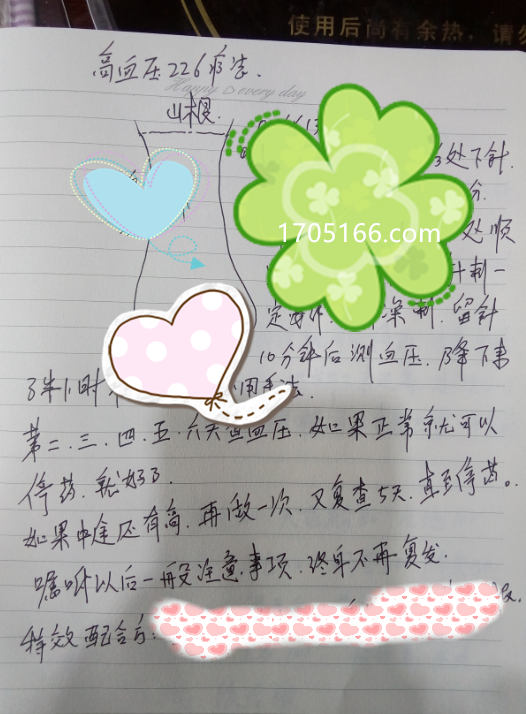 使用后尚有余热，请勿
高血压226疗法.
Happy every day
山根.
处下针.
分.
1705166.com
处顺
针刺一
定 深刺. 留针
10分钟后测血压. 降下来
了半小时 用手法.
第二. 三. 四. 五. 六天查血压. 如果正常就可以
停药. 就好了.
如果中途还有高. 再做一次. 又复查5天. 直至停药。
嘱咐以后一般注意事项. 终身不再复发.
特效配合方: